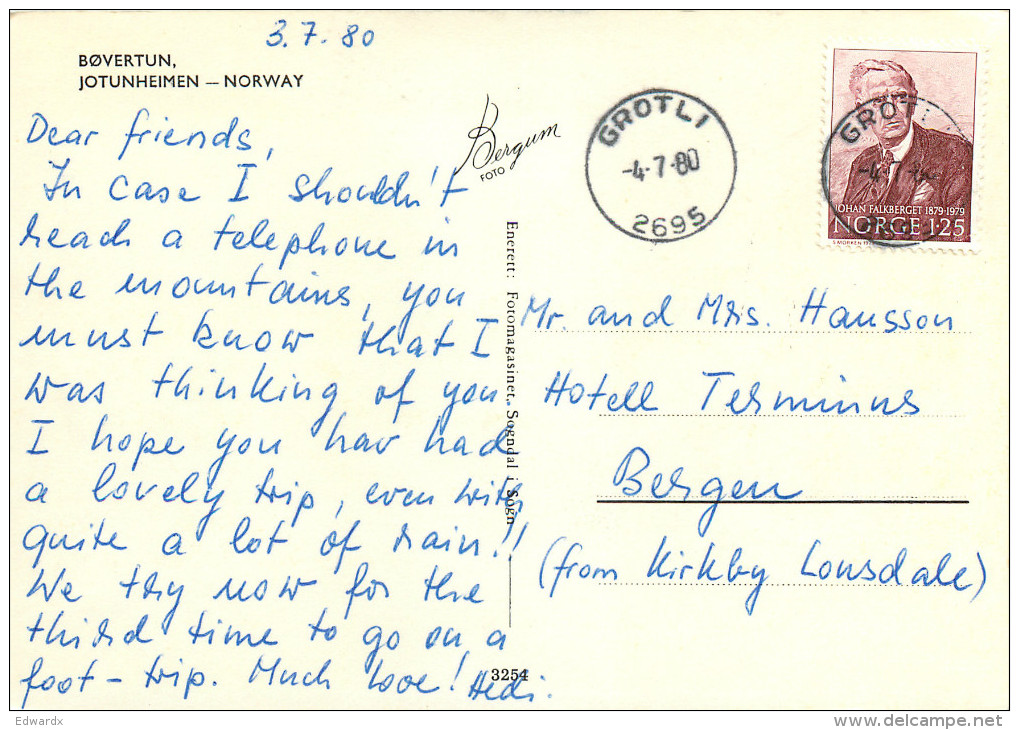 3.7.80
BØVERTUN,
JOTUNHEIMEN — NORWAY
Dear friends,
In case I shouldn't
reach a telephone in
the mountains, you
must know that I
was thinking of you.
I hope you hav had
a lovely trip, even with
quite a lot of rain!!
We try now for the
third time to go on a
foot-trip. Much love! Hedi.
Bergum
FOTO
Enerett: Fotomagasinet, Sogndal i Sogn
3254
GROTLI
-4-7-80
2695
GROTLI
-4-7-80
JOHAN FALKBERGET 1879·1979
NORGE 125
S. MORKEN
Mr. and Mrs. Hansson
Hotell Terminus
Bergen
(from Kirkby Lonsdale)
Edwardx
www.delcampe.net